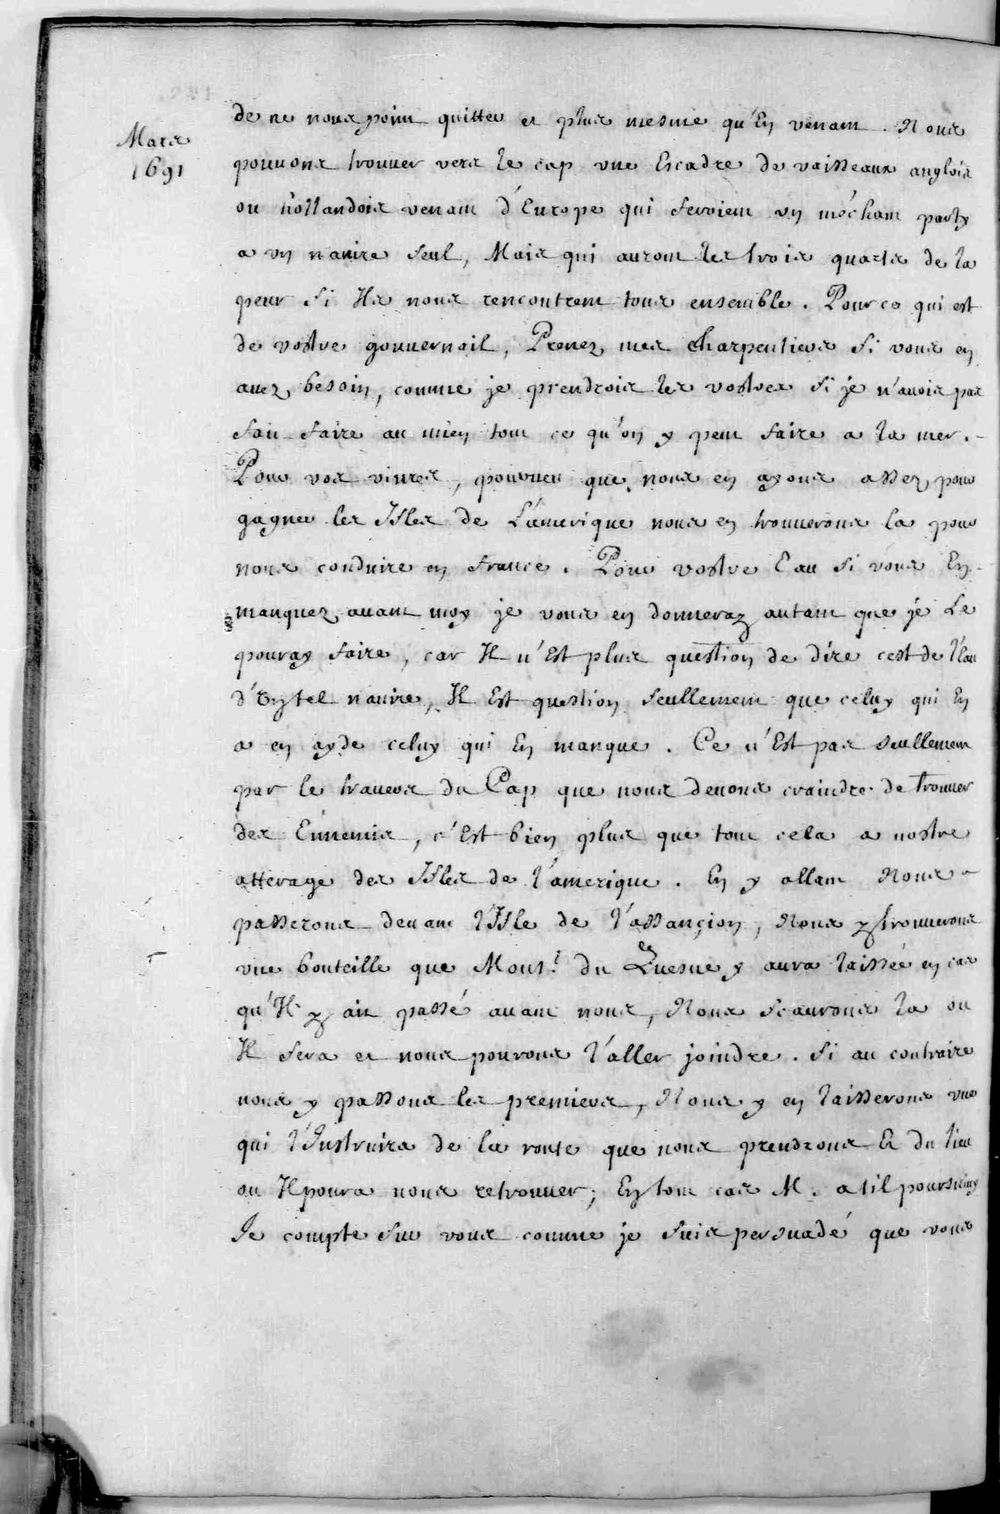 Mars
1691
de ne nous point quitter et plus mesme qu'En venant. Nous
pouvons trouver vers le cap une Escadre de vaisseaux anglois
ou hollandois venant d'Europe qui feroient un méchant party
a un navire seul, Mais qui auront les trois quarts de la
peur si Ils nous rencontrent tous ensemble. Pour ce qui est
de vostre gouvernail, Prenez mes charpentiers si vous en
avez besoin, comme je prendrois les vostres si je n'avois pas
fait faire au mien tout ce qu'on y peut faire a la mer.
Pour vos vivres, pourveu que nous en ayons assez pour
gagner les Isles de L'amerique nous en trouverons la pour
nous conduire en france. Pour vostre Eau si vous En
manquez avant moy je vous en donneray autant que je Le
pouray faire, car Il n'Est plus question de dire cest de l'Eau
d'Un tel navire, Il Est question seullement que celuy qui En
a en ayde celuy qui En manque. Ce n'Est pas seullement
par le travers du Cap que nous devons craindre de trouver
des Ennemis, c'Est bien plus que tout cela a nostre
atterage des Isles de l'amerique. En y allant Nous
passerons devant l'Isle de l'assançion, Nous y trouverons
une bouteille que Mons.r du Quesne y aura laissée en cas
qu'Il y ait passé avant nous, Nous sçaurons la ou
Il sera et nous pourons l'aller joindre. si au contraire
nous y passons les premiers, Nous y en laisserons une
qui l'Instruira de la route que nous prendrons Et du lieu
ou Il poura nous retrouver; En tout cas M. a til poursuivy
Je compte sur vous comme je suis persuadé que vous